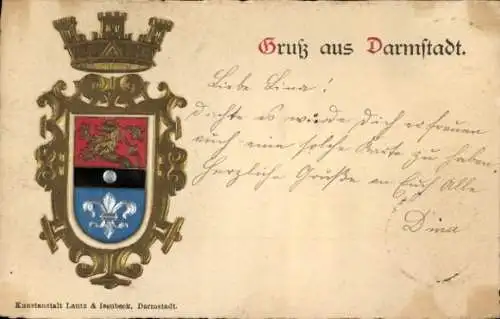 Gruß aus Darmstadt.
Liebe Lina!
Dachte es würde Dich erfreuen
auch eine solche Karte zu haben.
Herzliche Grüße an Euch Alle
Dina
Kunstanstalt Lautz & Isenbeck, Darmstadt.